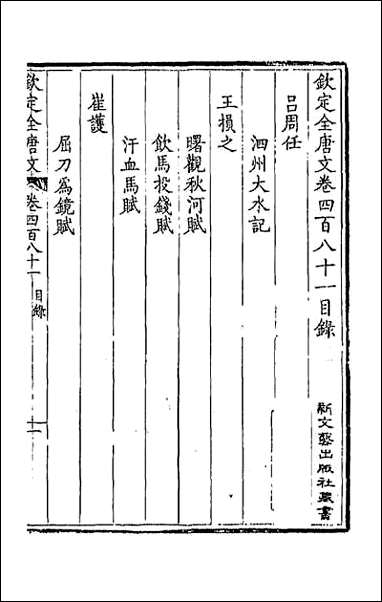 欽定全唐文卷四百八十一目錄
新文藝出版社藏書
呂周任
泗州大水記
王損之
曙觀秋河賦
飲馬投錢賦
汗血馬賦
崔護
屈刀為鏡賦
欽定全唐文 卷四百八十一 目錄 一